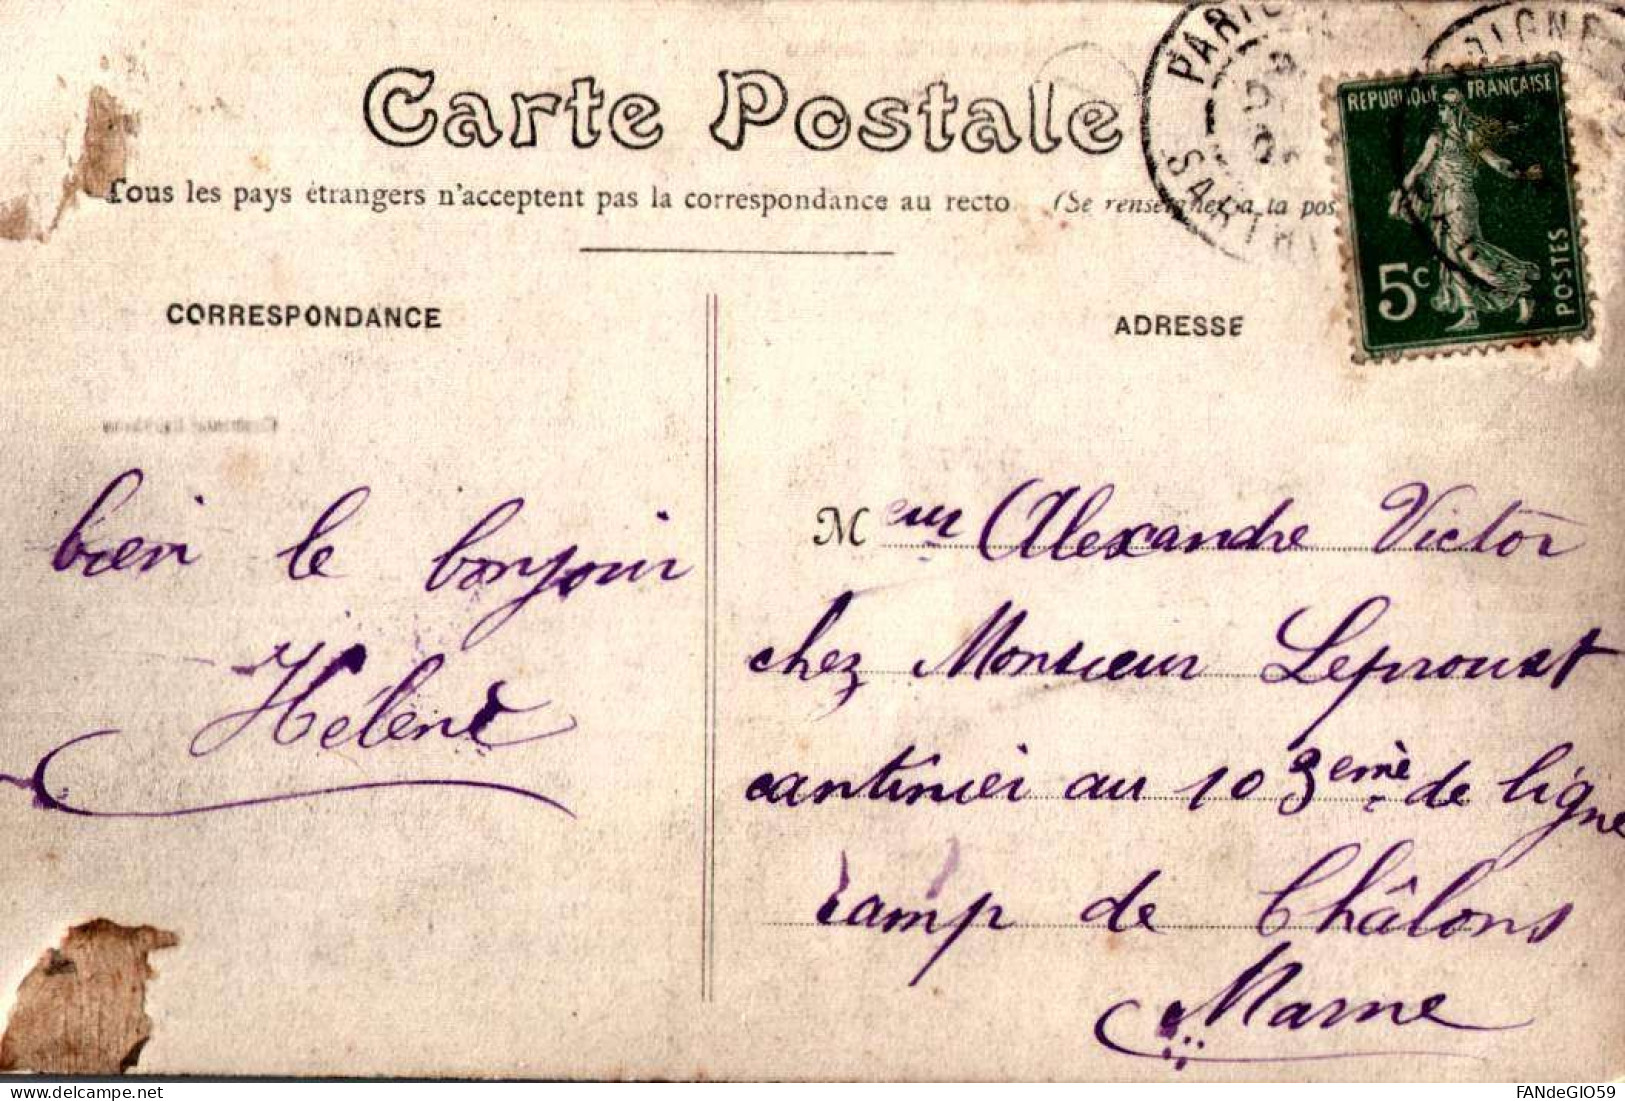 Carte Postale
Tous les pays étrangers n'acceptent pas la correspondance au recto (Se renseigner à la pos
PARIGNE
SARTHE
REPUBLIQUE FRANÇAISE
5c
POSTES
CORRESPONDANCE
ADRESSE
bien le bonjour
Hélène
Meur Alexandre Victor
chez Monsieur Leproust
cantinier au 103ème de ligne
camp de Châlons
Marne
FANdeGIO59